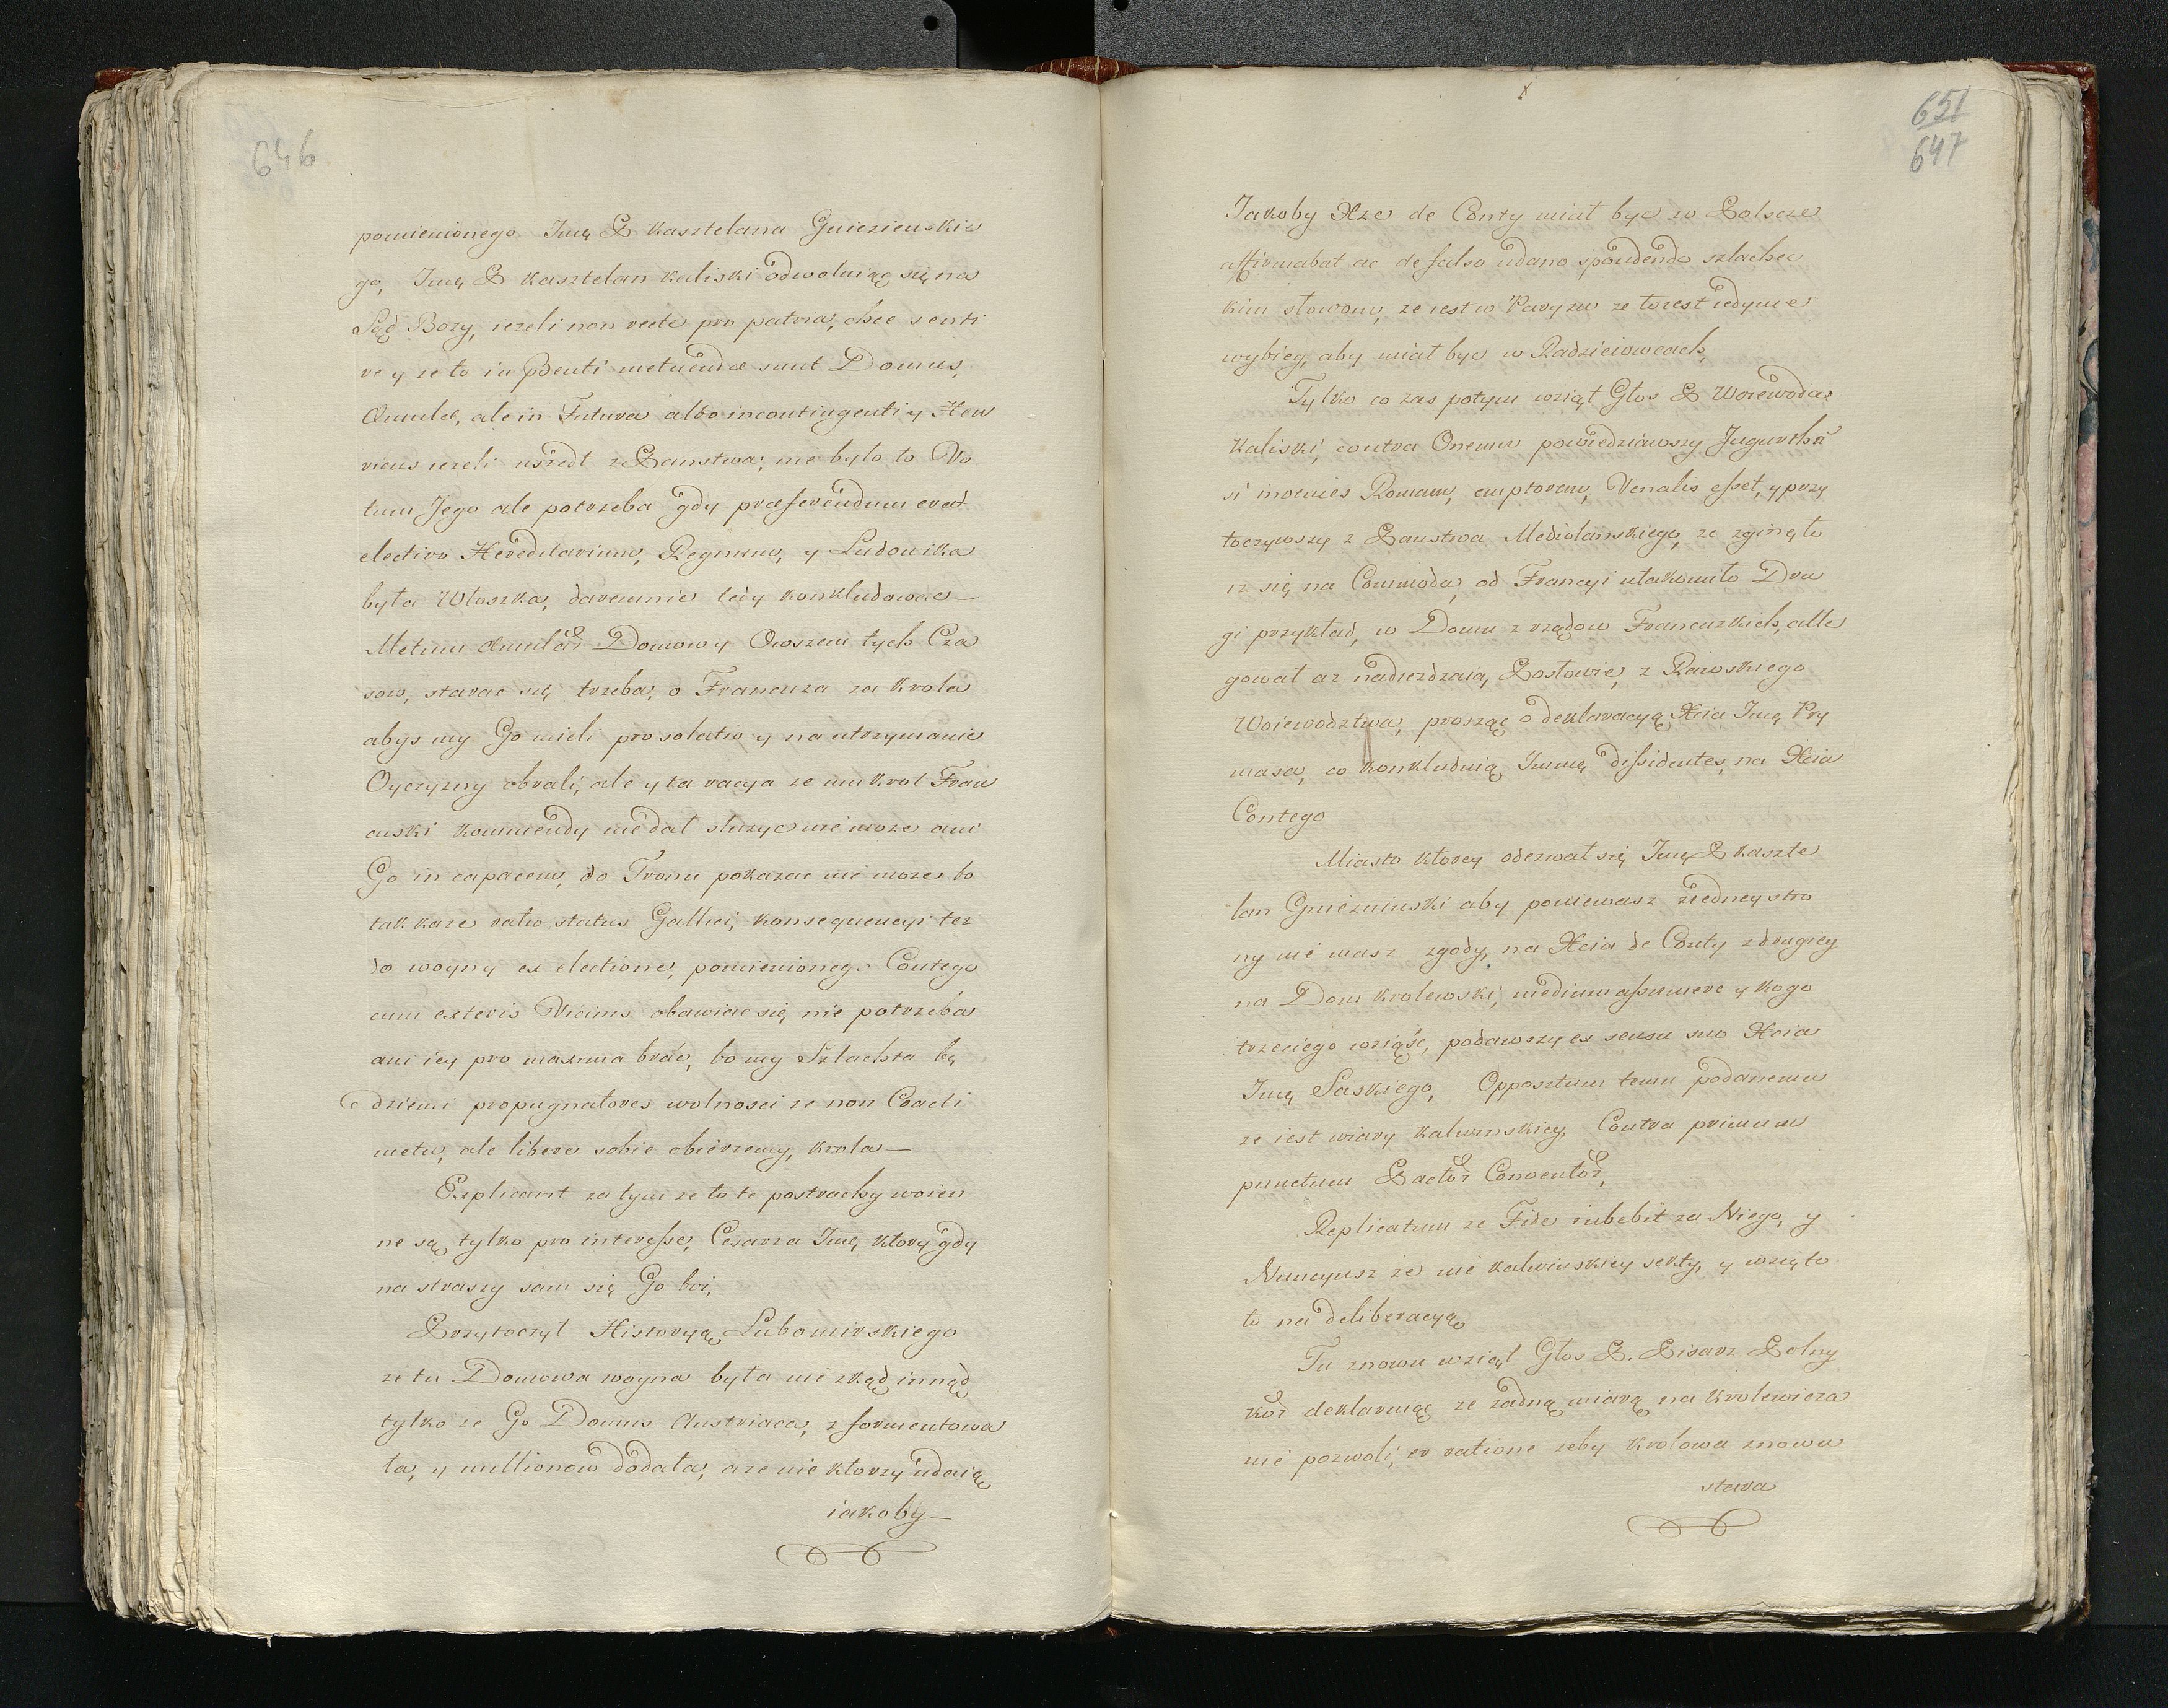 646
pomienionego Jmę P Kasztelana Gniezienskie
go, Jmę P Kasztelan Kaliski odwoluiąc się na
Sąd Bozy, iezeli non recte pro patria, chce senti
re y ze to in pdenti metuendæ sunt Domus,
Æmulæ, ale in Futura albo incontingenti y Hen
ricus iezeli uszedt z Panstwa, nie było to Vo
tum Jego ale potrzeba gdy præferendum erat
electivo Hereditarium, Regnum, y Ludowika
była Włoszka, daremnie tedy konkludowac
Metum Æmulaƶ Domow y Owszem tych Cza
sow, starac się trzeba, o Francuza za Krola
abys my Go mieli pro solatio y na utrzymanie
Oyczyzny obrali, ale y ta racya ze mu Krol Fran
cuski kommendy nie dał słuzyc nie moze ani
Go incapacem, do Tronu pokazac nie moze bo
tak kaze ratio status Gallici, konsequencyi tez
do woyny ex electione, pomienionego Contego
cum exteris Vicinis obawiac się, nie potrzeba
ani iey pro maxima brac, bo my Szlachta bę
dziemi propugnatores wolnosci ze non Coacti
metu, ale libere sobie obierzemy, krola
Explicavit za tym ze to te postrachy woien
ne są, tylko pro interesse, Cesarza Jmę, ktory gdy
na straszy sam się Go boi,
Przytoczył Historyą, Lubomirskiego
ze tu Domowa woyna była nie zkąd innąd,
tylko ze Go Domus Austriaca, zformentowa
ła, y millionow dodała, a ze nie ktorzy udaią
iakoby
651
647
Jakoby Xze de Conty miał byc w Polscze
affirmabat ac de falso udano spondendo szlachec
kim słowem, ze iest w Paryzu ze to iest iedyme
wybieg, aby miał byc w Radzieiowcach,
Tylko co zas potym wziął Głos P Woiewoda
Kaliski, contra Onemu powiedziawszy Jugurtha
si invenies Romam, emptorem, Venalis esset, y przy
toczywszy z Panstwa Mediolanskiego, ze zginęło
iz się na Commoda, od Francyi ułakomiło Dru
gi przykład, w Domu z rządow Francuzkich, alle
gował az nadiezdzaią, Posłowie, z Rawskiego
Woiewodztwa, prosząc o deklaracyą Xcia Jmę Pry
masa, co konkluduią Jmmę dissidentes, na Xcia
Contego
Miasto ktorey odezwał się Jmę P Kaszte
lan Gniezninski aby poniewasz ziedney stro
ny nie masz zgody, na Xcia de Conty z drugiey
na Dom krolewski, medium assumere y kogo
trzeciego wziąść, podawszy ex sensu suo Xcia
Jmę Saskiego, Oppositum temu podanemu
ze iest wiary kalwinskiey, Contra primum
punctum Pactoƶ Conventoƶ,
Replicatum ze Fide iubebit za Niego, y
Nuncyusz ze nie kalwinskiey sekty, y wzięto
to na deliberacyą,
Tu znowu wziął Głos P. Pisarz Polny
Koƶ deklaruiąc ze zadną miarą na Krolewicza
nie pozwoli, ex ratione zeby Krolowa znowu
stara